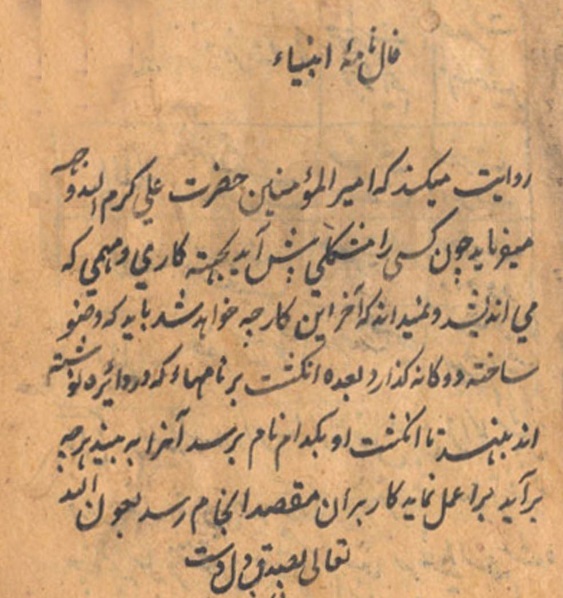 فال نامهٔ انبیاء
روایت میکند که امیر المؤمنین حضرت علی کرم الله وجهه
میفرماید چون کسی را مشکلی پیش آید بجهته کاري و مهمي که
مي اندیشد و نمیداند که آخر این کار چه خواهد شد باید که وضو
ساخته دوکانه کذارد بعده انکشت بر نامهاء که در دائره نوشته
اند بنهد تا انکشت او بکدام نام برسد آنرا به بیند هرچه
برآید برا عمل نماید کار بران مقصد انجام رسد بعون الله
تعالی بصدق دل